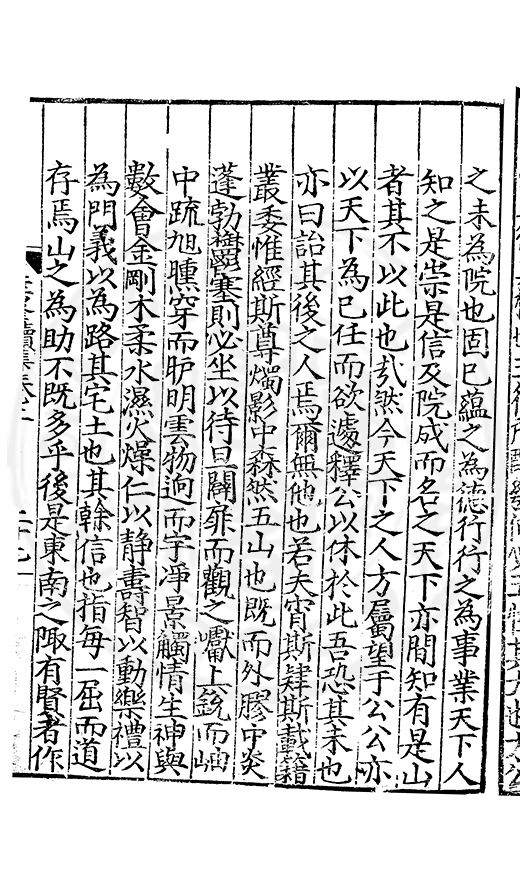 之未為院也固已蘊之為德行行之為事業天下人
知之是崇是信及院成而名之天下亦間知有是山
者其不以此也㢤然今天下之人方屬望于公公亦
以天下為己任而欲遽釋公以休於此吾恐其未也
亦曰詒其後之人焉爾無他也若夫宵斯肄斯載籍
叢委惟經斯尊燭影中森然五山也既而外膠中炎
蓬勃欝塞則必坐以待旦闢扉而觀之巘上銳而岫
中疏旭曛穿而胪明雲物逈而宇凈景觸情生神與
數會金剛木柔水濕火燥仁以静壽智以動樂禮以
為門義以為路其宅土也其榦信也指每一屈而道
存焉山之為助不既多乎後是東南之陬有賢者作